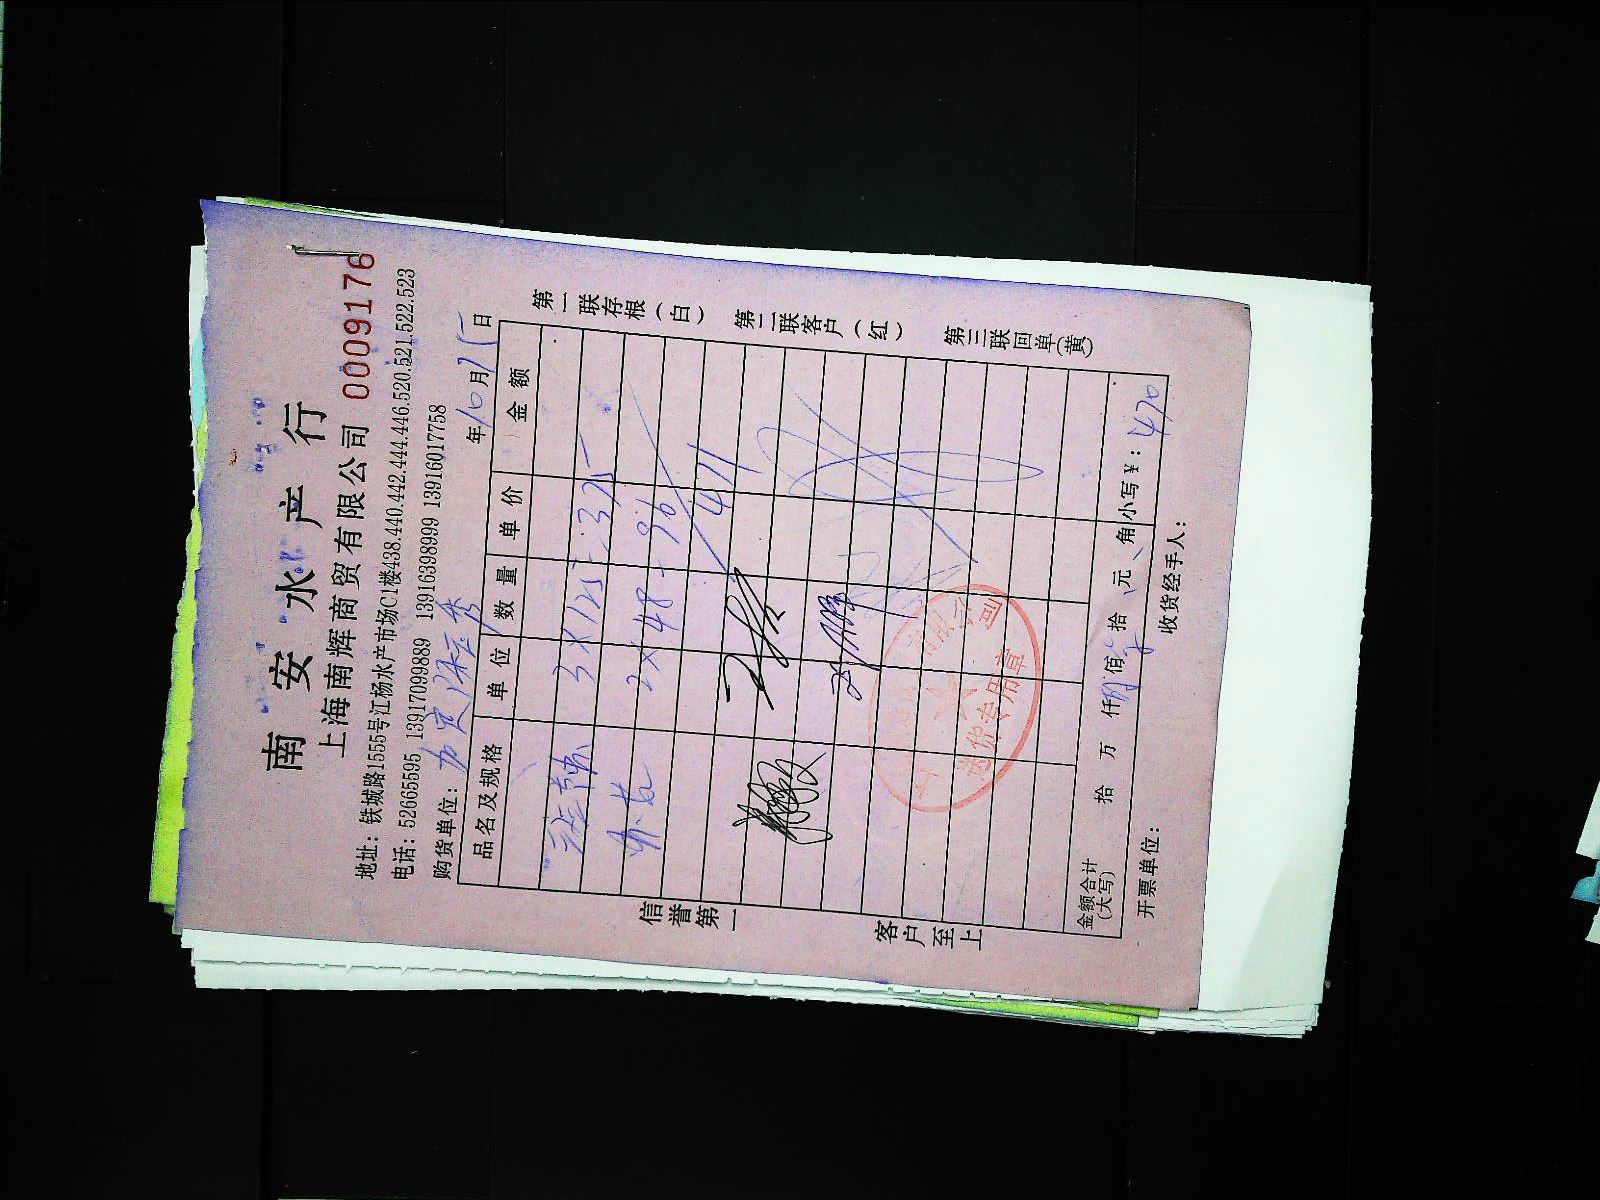 南安水产行
上海南辉商贸有限公司 0009176
地址：铁城路1555号江杨水产市场C1楼438.440.442.444.446.520.521.522.523
电话：52665595 13917099889 13916398999 13916017758
购货单位： 年10月15日
品名及规格 单位 数量 单价 金额
3×125=375
2×48=96
471
金额合计(大写) 拾 万 仟 佰 拾 元 角 小写￥：470
开票单位： 收货经手人：
信誉第一
客户至上
第一联存根（白）
第二联客户（红）
第三联回单（黄）
送货专用章